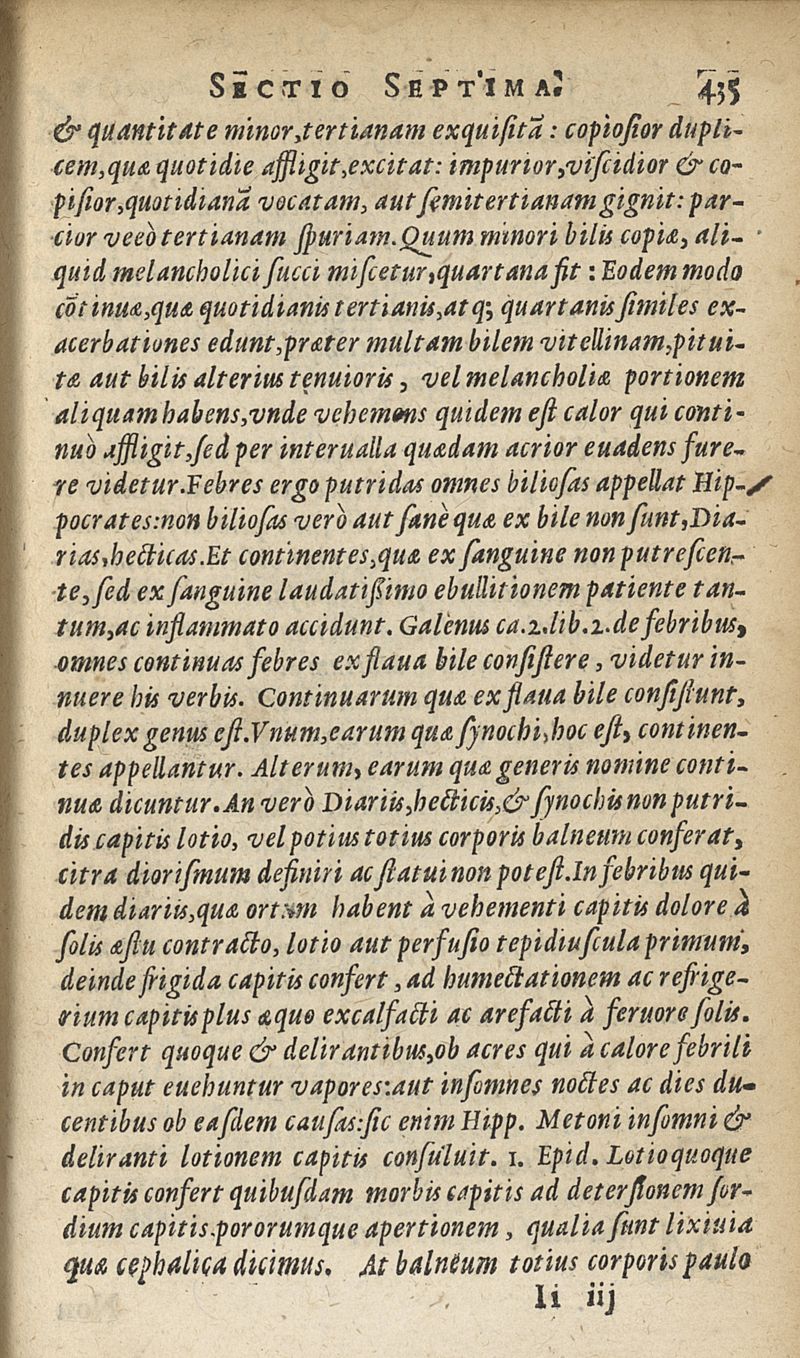 SECTIO SEPTIMA. 435
& quantitate minor,tertianam exquiſitā : copioſior dupli-
cem,quæ quotidie affligit,excitat: impurior,viſcidior & co-
piſior,quotidianā vocatam, aut ſemitertianam gignit: par-
cior veeò tertianam ſpuriam.Quum minori bilis copiæ, ali-
quid melancholici ſucci miſcetur,quartana fit : Eodem modo
cōtinuæ,quæ quotidianis tertianis,atq; quartanis ſimiles ex-
acerbationes edunt,præter multam bilem vitellinam,pitui-
tæ aut bilis alterius tenuioris , vel melancholiæ portionem
aliquam habens,vnde vehemens quidem eſt calor qui conti-
nuò affligit,ſed per interualla quædam acrior euadens fure-
re videtur.Febres ergo putridas omnes bilioſas appellat Hip-
pocrates:non bilioſas verò aut ſanè quæ ex bile non ſunt,Dia-
rias,hecticas.Et continentes,quæ ex ſanguine non putreſcen-
te,ſed ex ſanguine laudatiſſimo ebullitionem patiente tan-
tum,ac inflammato accidunt. Galenus ca.2.lib.2.de febribus,
omnes continuas febres ex flaua bile conſiſtere , videtur in-
nuere his verbis. Continuarum quæ ex flaua bile conſiſtunt,
duplex genus eſt.Vnum,earum quæ ſynochi,hoc eſt, continen-
tes appellantur. Alterum, earum quæ generis nomine conti-
nuæ dicuntur.An verò Diariis,hecticis,& ſynochis non putri-
dis capitis lotio, vel potius totius corporis balneum conferat,
citra dioriſmum definiri ac ſtatui non poteſt.In febribus qui-
dem diariis,quæ ortum habent à vehementi capitis dolore à
ſolis æſtu contracto, lotio aut perfuſio tepidiuſcula primum,
deinde frigida capitis confert , ad humectationem ac refrige-
rium capitis plus æquo excalfacti ac arefacti à feruore ſolis.
Confert quoque & delirantibus,ob acres qui à calore febrili
in caput euehuntur vapores:aut inſomnes noctes ac dies du-
centibus ob eaſdem cauſas:ſic enim Hipp. Metoni inſomni &
deliranti lotionem capitis conſuluit. 1. Epid. Lotio quoque
capitis confert quibuſdam morbis capitis ad deterſionem ſor-
dium capitis,pororumque apertionem , qualia ſunt lixiuia
quæ cephalica dicimus. At balneum totius corporis paulo
Ii iij